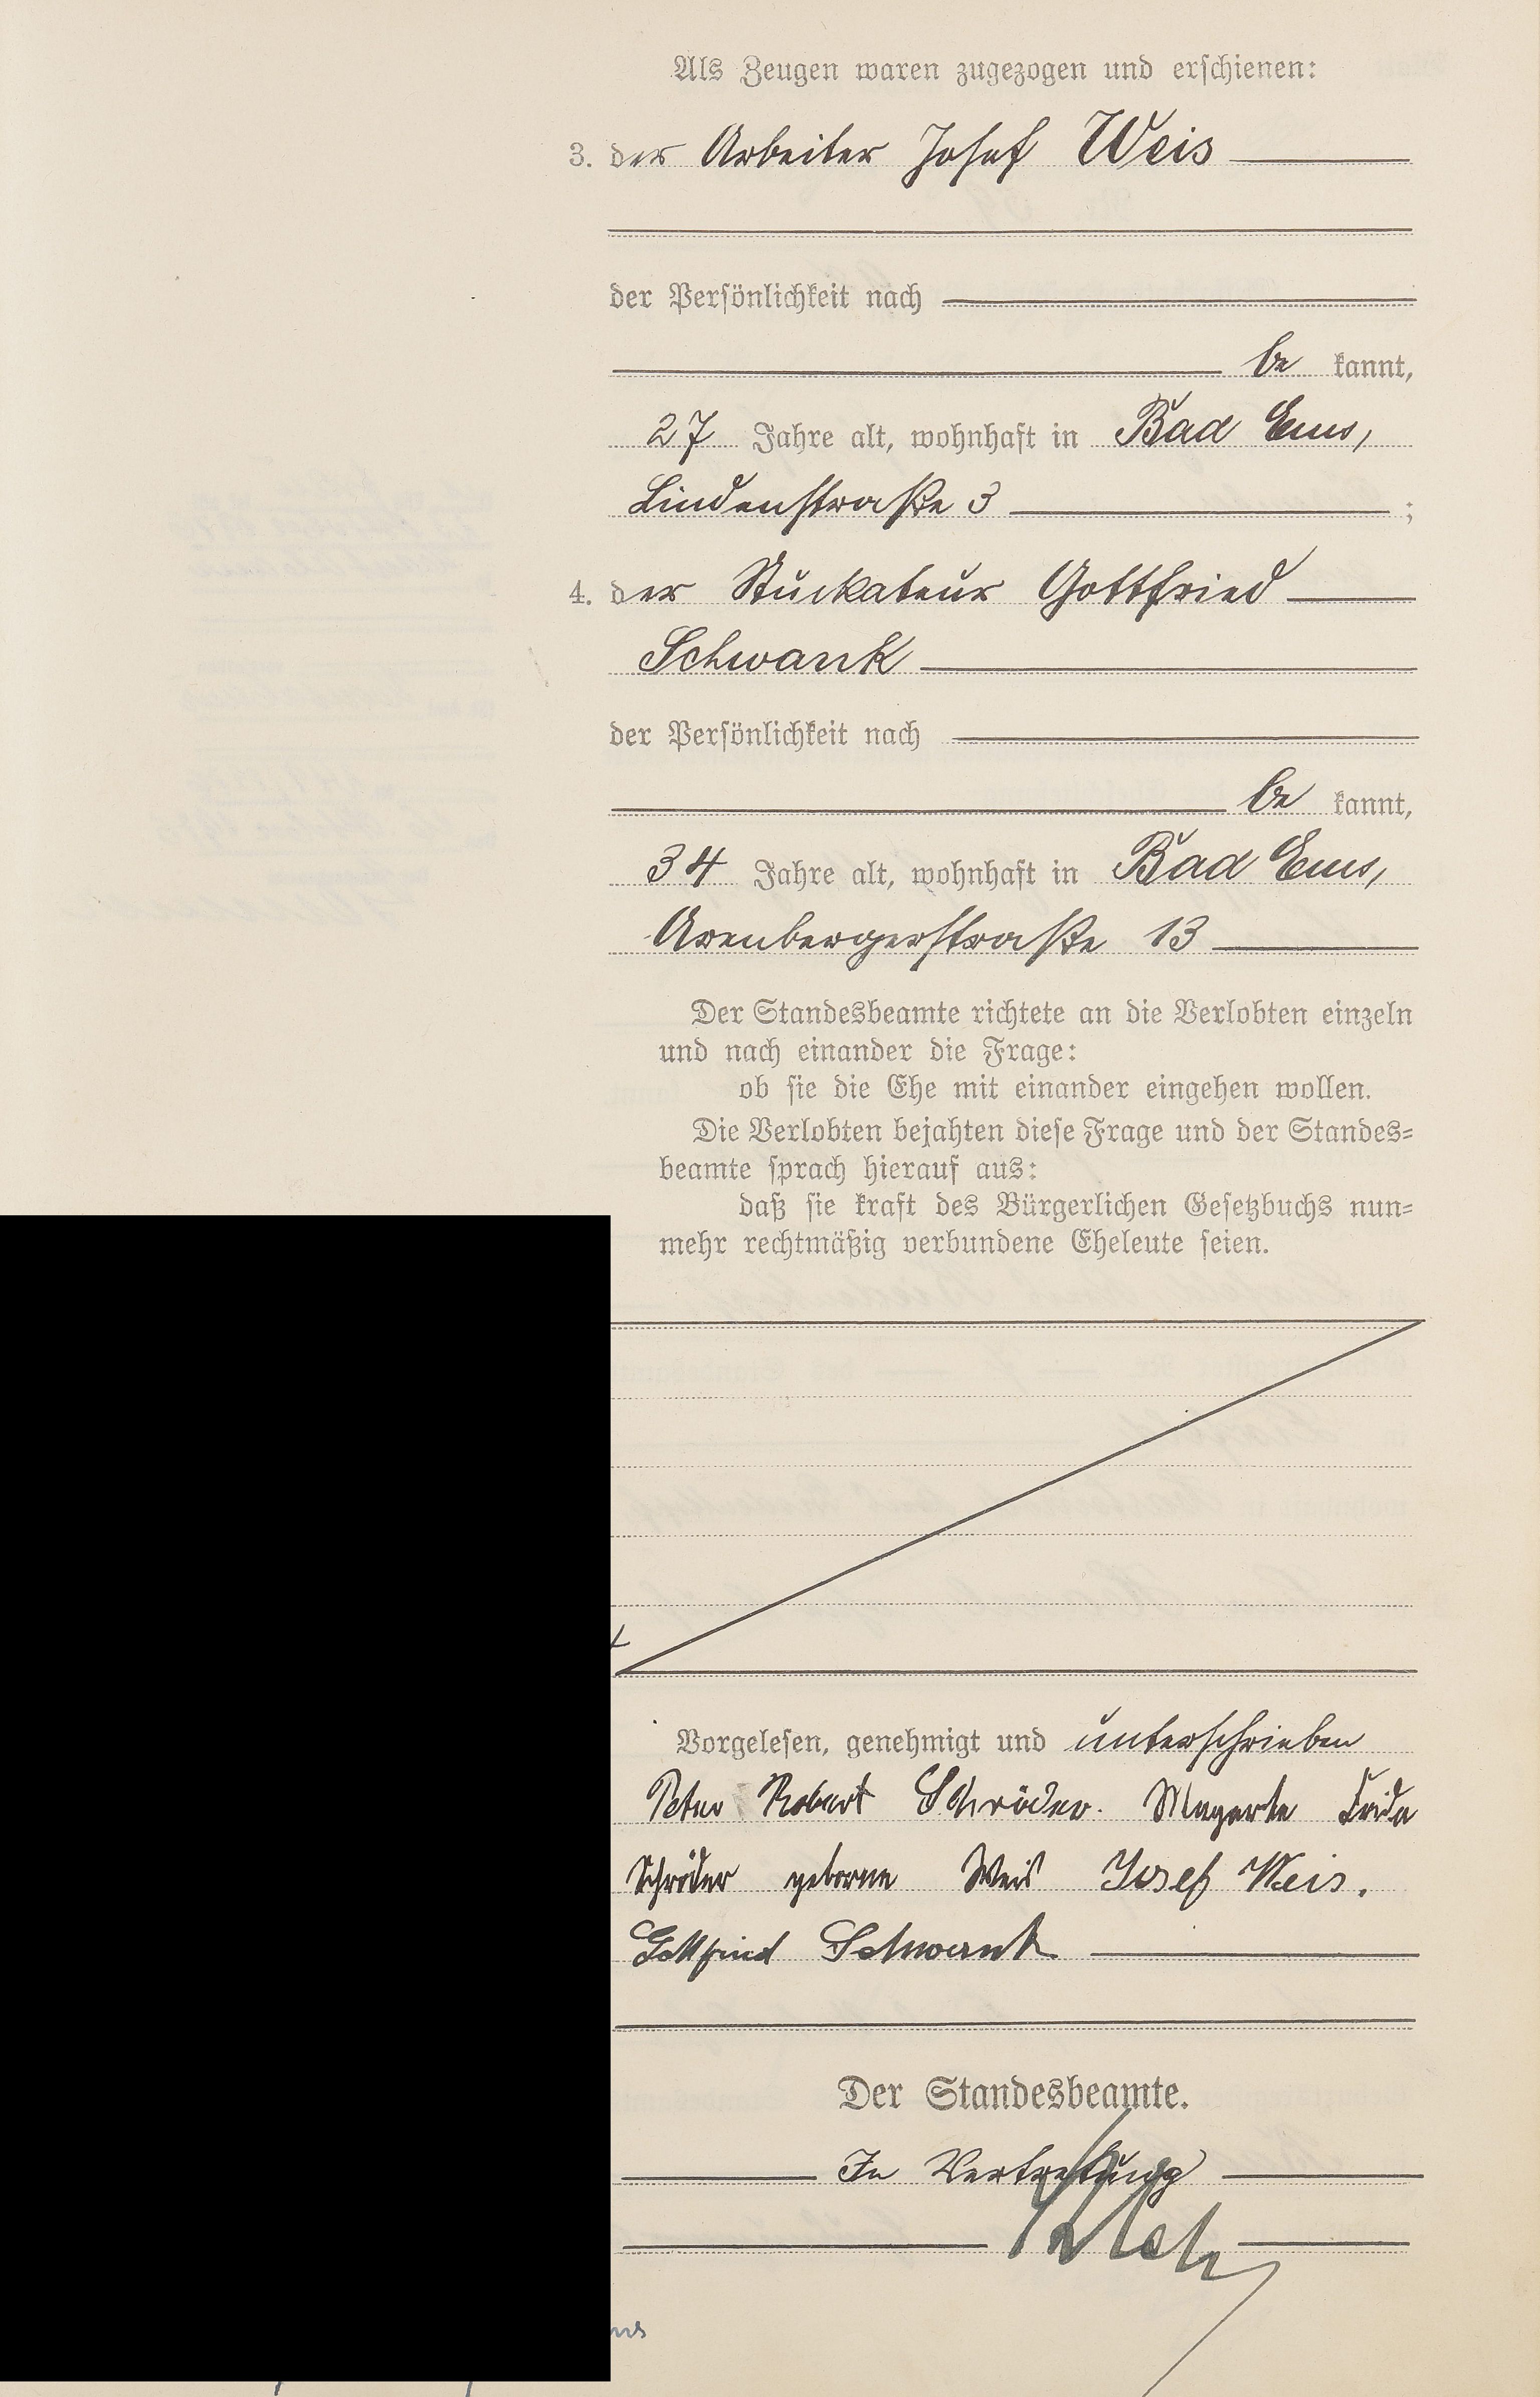 Als Zeugen waren zugezogen und erschienen:
3. der Arbeiter Josef Weis
der Persönlichkeit nach
be kannt,
27 Jahre alt, wohnhaft in Bad Ems,
Lindenstraße 3 ;
4. der Stuckateur Gottfried
Schwank
der Persönlichkeit nach
be kannt,
34 Jahre alt, wohnhaft in Bad Ems,
Arenbergerstraße 13
Der Standesbeamte richtete an die Verlobten einzeln
und nach einander die Frage:
ob sie die Ehe mit einander eingehen wollen.
Die Verlobten bejahten diese Frage und der Standes-
beamte sprach hierauf aus:
daß sie kraft des Bürgerlichen Gesetzbuchs nun-
mehr rechtmäßig verbundene Eheleute seien.
Vorgelesen, genehmigt und unterschrieben
Peter Robert Schröder. Magarete Frida
Schröder geborene Weis Josef Weis.
Gottfried Schwank
Der Standesbeamte.
In Vertretung